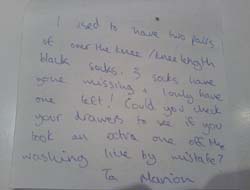 I used to have two pairs
of over the knee/knee length
black socks. 3 socks have
gone missing & I only have
one left! Could you check
your drawers to see if you
took an extra one off the
washing line by mistake?
Ta Marion